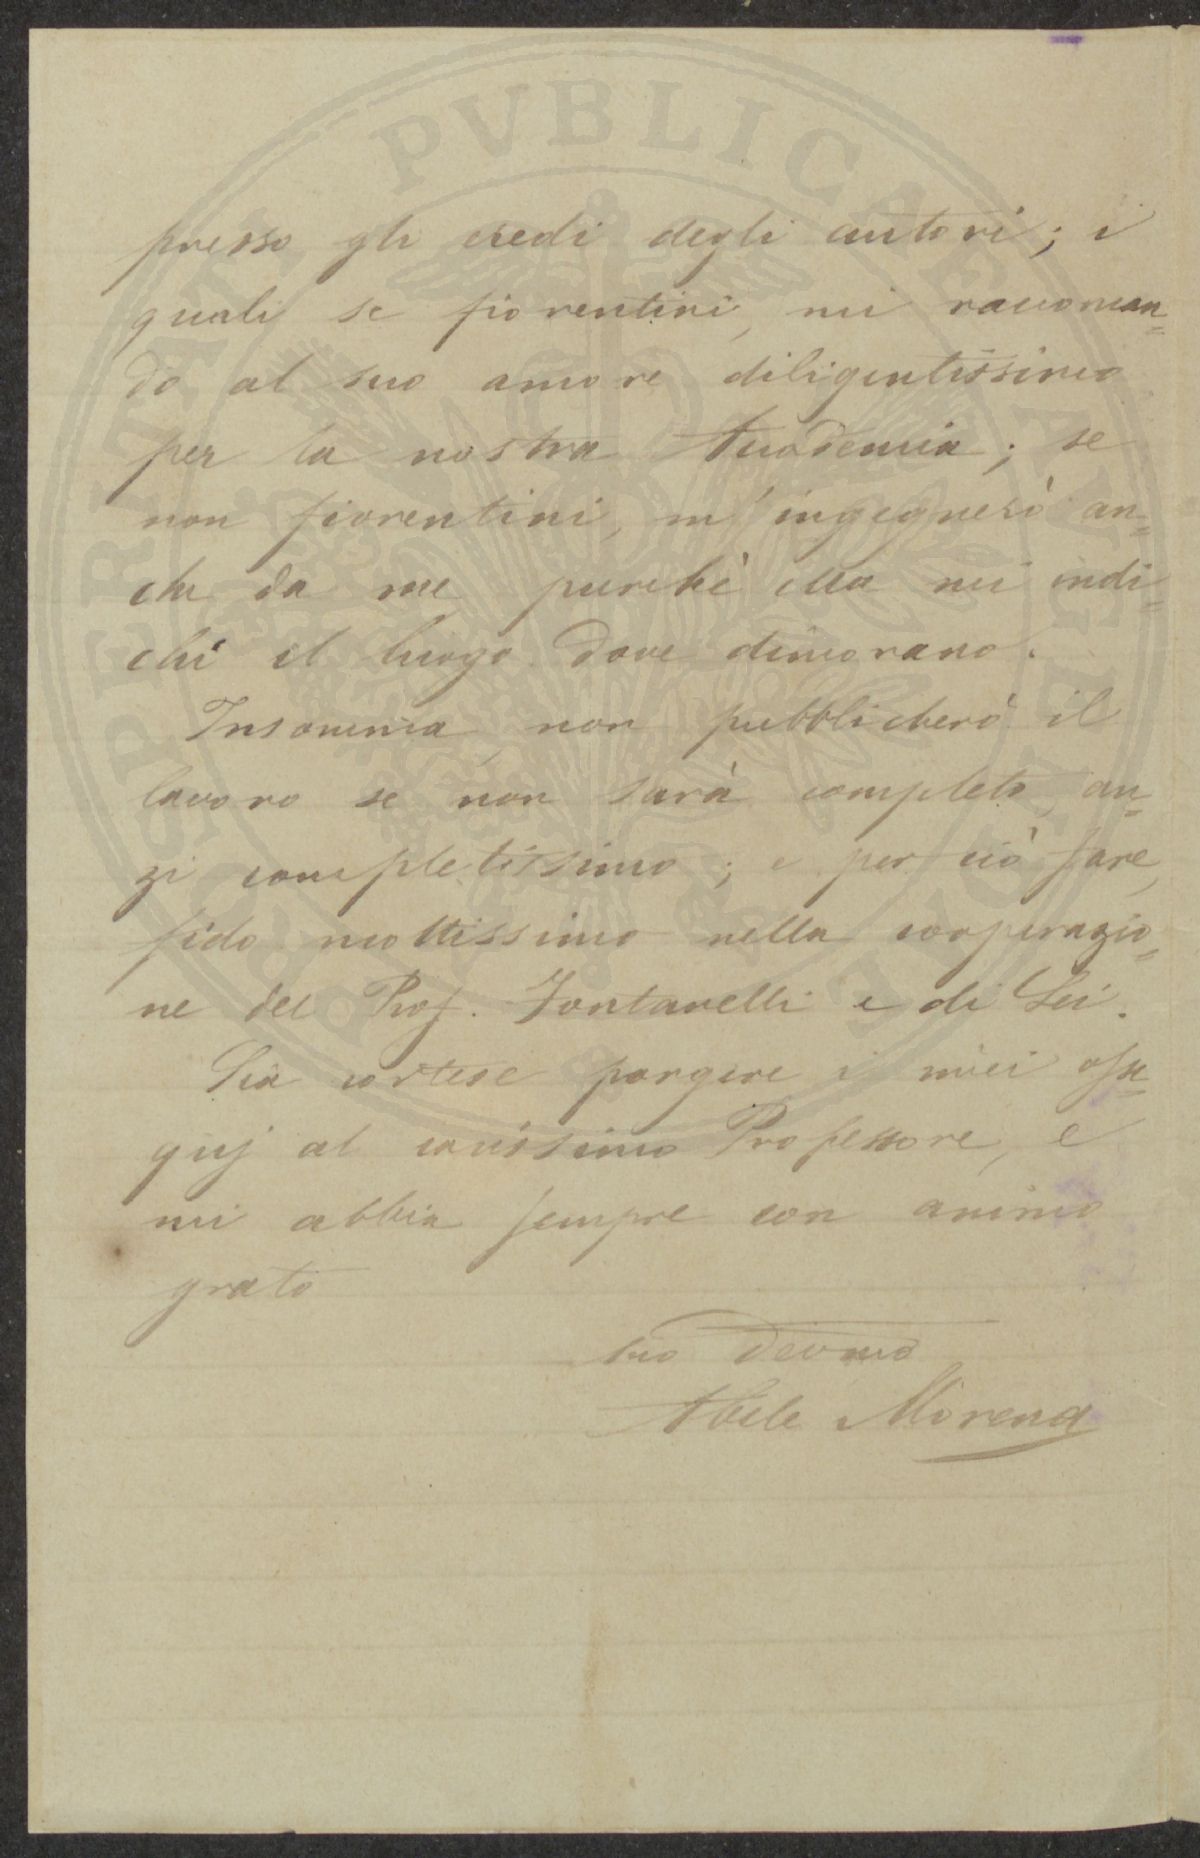 presso gli eredi degli autori; i
quali se fiorentini, mi raccoman=
do al suo amore diligentissimo
per la nostra Accademia; se
non fiorentini, m'ingegnerò an=
che da me purchè ella mi indi=
chi il luogo dove dimorano.
Insomma, non pubblicherò il
lavoro se non sarà completo, an=
zi completissimo; e per ciò fare,
fido moltissimo nella cooperazio=
ne del Prof. Fontanelli e di Lei.
Sia cortese porgere i miei osse=
quj al carissimo Professore, e
mi abbia sempre con animo
grato
Suo Devmo
Abele Morena
PROSPERITATI PVBLICAE AVGENDAE